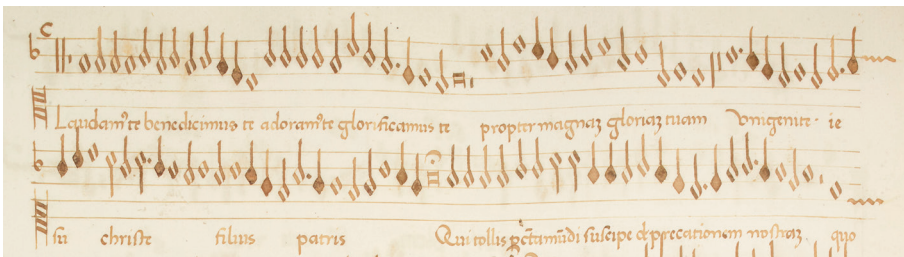 Laudam⁹ te benedicimus te adoram⁹ te glorificamus te propter magnaꝫ gloriaꝫ tuam Vnigenite · ie
su christe filius patris Qui tollis suscipe dep̱recationem nostraꝫ quo